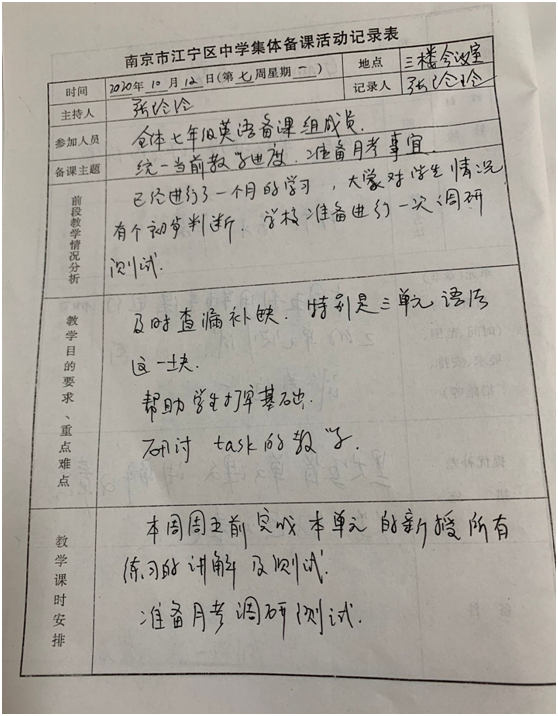 南京市江宁区中学集体备课活动记录表
时间 2020年10月12日(第七周星期一) 地点 三楼会议室
主持人 张玲玲 记录人 张玲玲
参加人员 全体七年级英语备课组成员.
备课主题 统一当前教学进度.准备月考事宜.
前段教学情况分析
已经进行了一个月的学习,大家对学生情况
有个初步判断.学校准备进行一次调研
测试.
教学目的要求、重点难点
及时查漏补缺.特别是三单元语法
这一块.
帮助学生打牢基础.
研讨 task的教学.
教学课时安排
本周周五前完成本单元的新授所有
练习的讲解及测试.
准备月考调研测试.